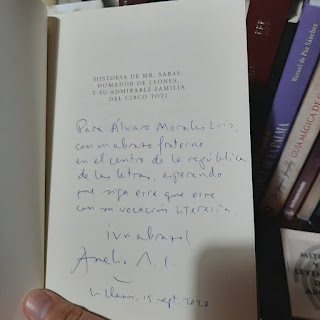 HISTORIA DE MR. SABAS,
DOMADOR DE LEONES,
Y SU ADMIRABLE FAMILIA
DEL CIRCO TOTI
Para Álvaro Morales Luis,
con un abrazo fraterno
en el centro de la república
de las letras, esperando
que siga erre que erre
con su vocación literaria.
¡un abrazo!
15 sept. 2020
Manuel de Paz Sánchez
GUÍA MÁGICA DE
LA PALMA
MITO
Y